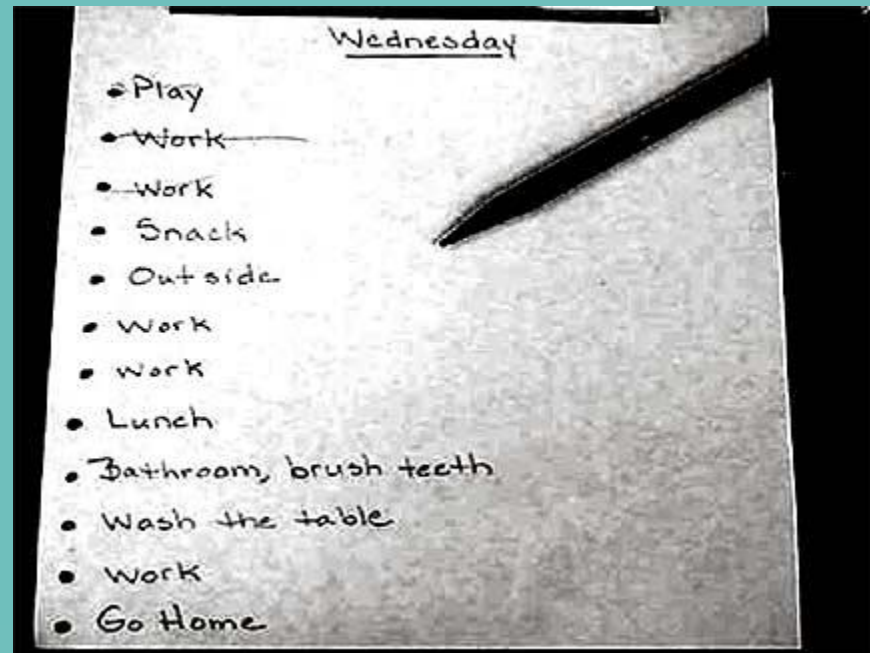 Wednesday
• Play
• Work
• Work
• Snack
• Outside
• Work
• Work
• Lunch
• Bathroom, brush teeth
• Wash the table
• Work
• Go Home